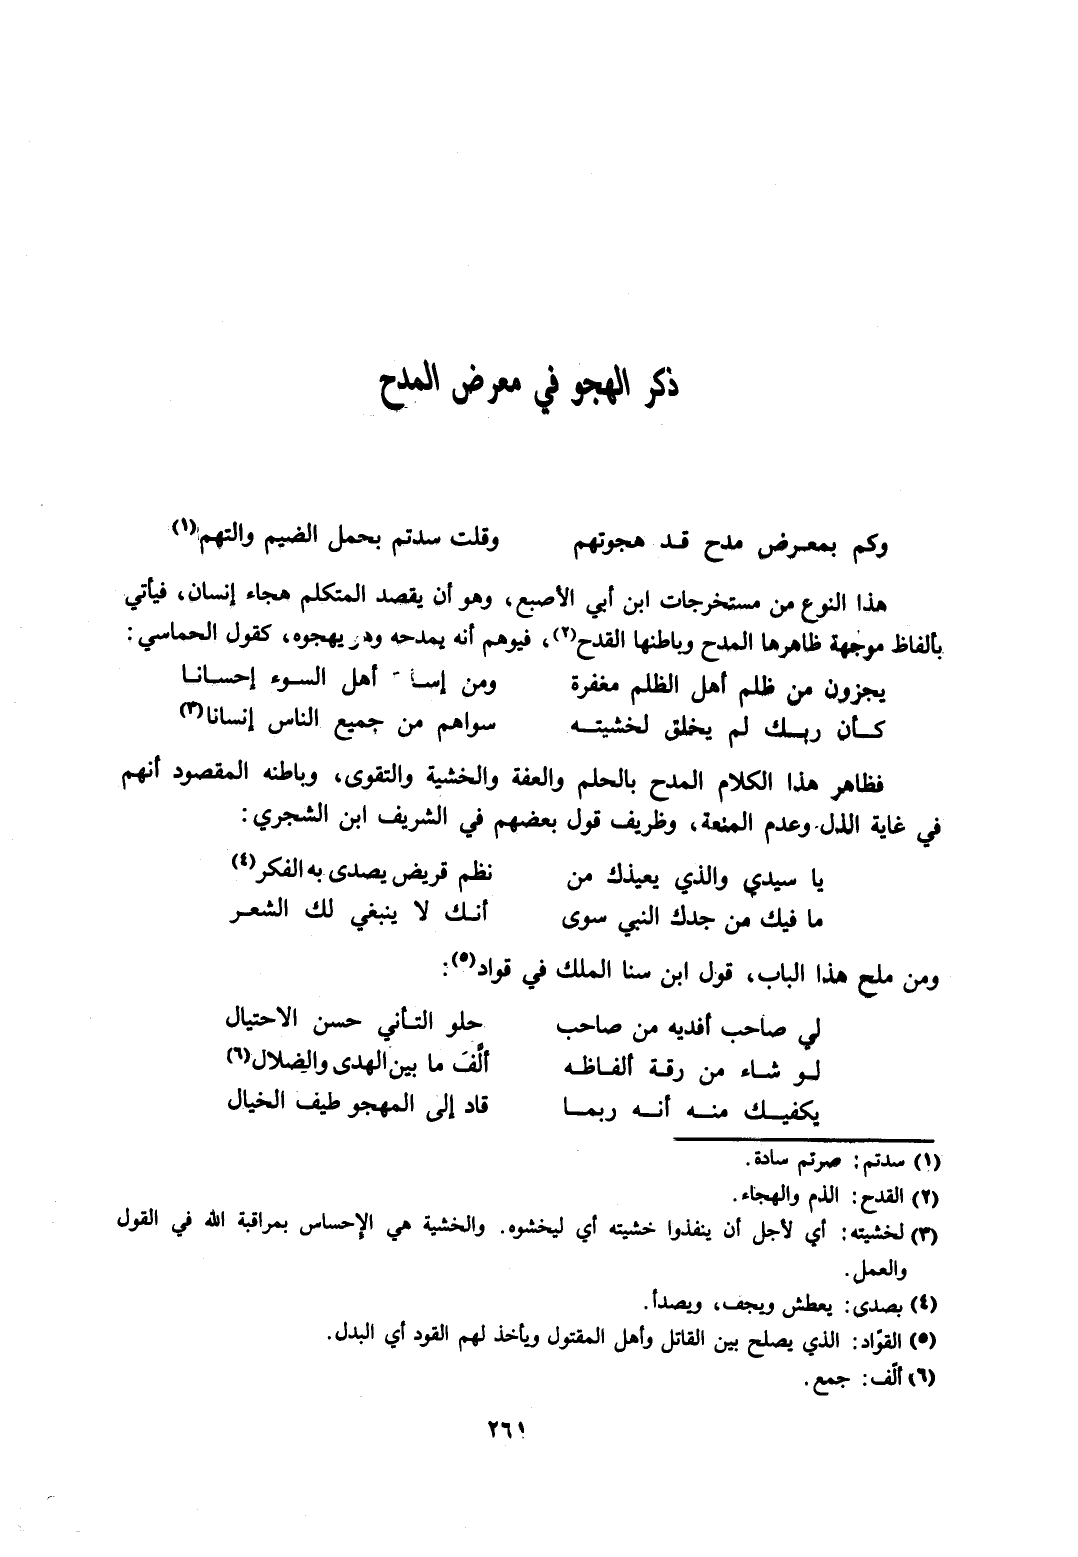 ذكر الهجو في معرض المدح
وكم بمعـرض مدح قـد هجوتهم وقلت سدتم بحمل الضيم والتهم(١)
هذا النوع من مستخرجات ابن أبي الأصبع، وهو أن يقصد المتكلم هجاء إنسان، فيأتي
بألفاظ موجهة ظاهرها المدح وباطنها القدح(٢)، فيوهم أنه يمدحه وهو يهجوه، كقول الحماسي:
يجزون من ظلم أهل الظلم مغفرة ومن إسـاءة أهل السـوء إحسـانـا
كـأن ربـك لم يخلق لخشيتـه سواهم من جميع الناس إنسانا(٣)
فظاهر هذا الكلام المدح بالحلم والعفة والخشية والتقوى، وباطنه المقصود أنهم
في غاية الذل وعدم المنعة، وظريف قول بعضهم في الشريف ابن الشجري:
يا سيدي والذي يعيذك من نظم قريض يصدى به الفكر(٤)
ما فيك من جدك النبي سوى أنـك لا ينبغي لك الشعـر
ومن ملح هذا الباب، قول ابن سنا الملك في قواد(٥):
لي صاحب أفديه من صاحب حلو التـأني حسن الاحتيال
لـو شـاء من رقـة ألفـاظـه ألَّفَ ما بين الهدى والضلال(٦)
يكفيـك منـه أنـه ربمـا قاد إلى المهجو طيف الخيال
(١) سدتم: صرتم سادة.
(٢) القدح: الذم والهجاء.
(٣) لخشيته: أي لأجل أن ينفذوا خشيته أي ليخشوه. والخشية هي الإحساس بمراقبة الله في القول
والعمل.
(٤) يصدى: يعطش ويجف، ويصدأ.
(٥) القوّاد: الذي يصلح بين القاتل وأهل المقتول ويأخذ لهم القود أي البدل.
(٦) ألّف: جمع.
٢٦١